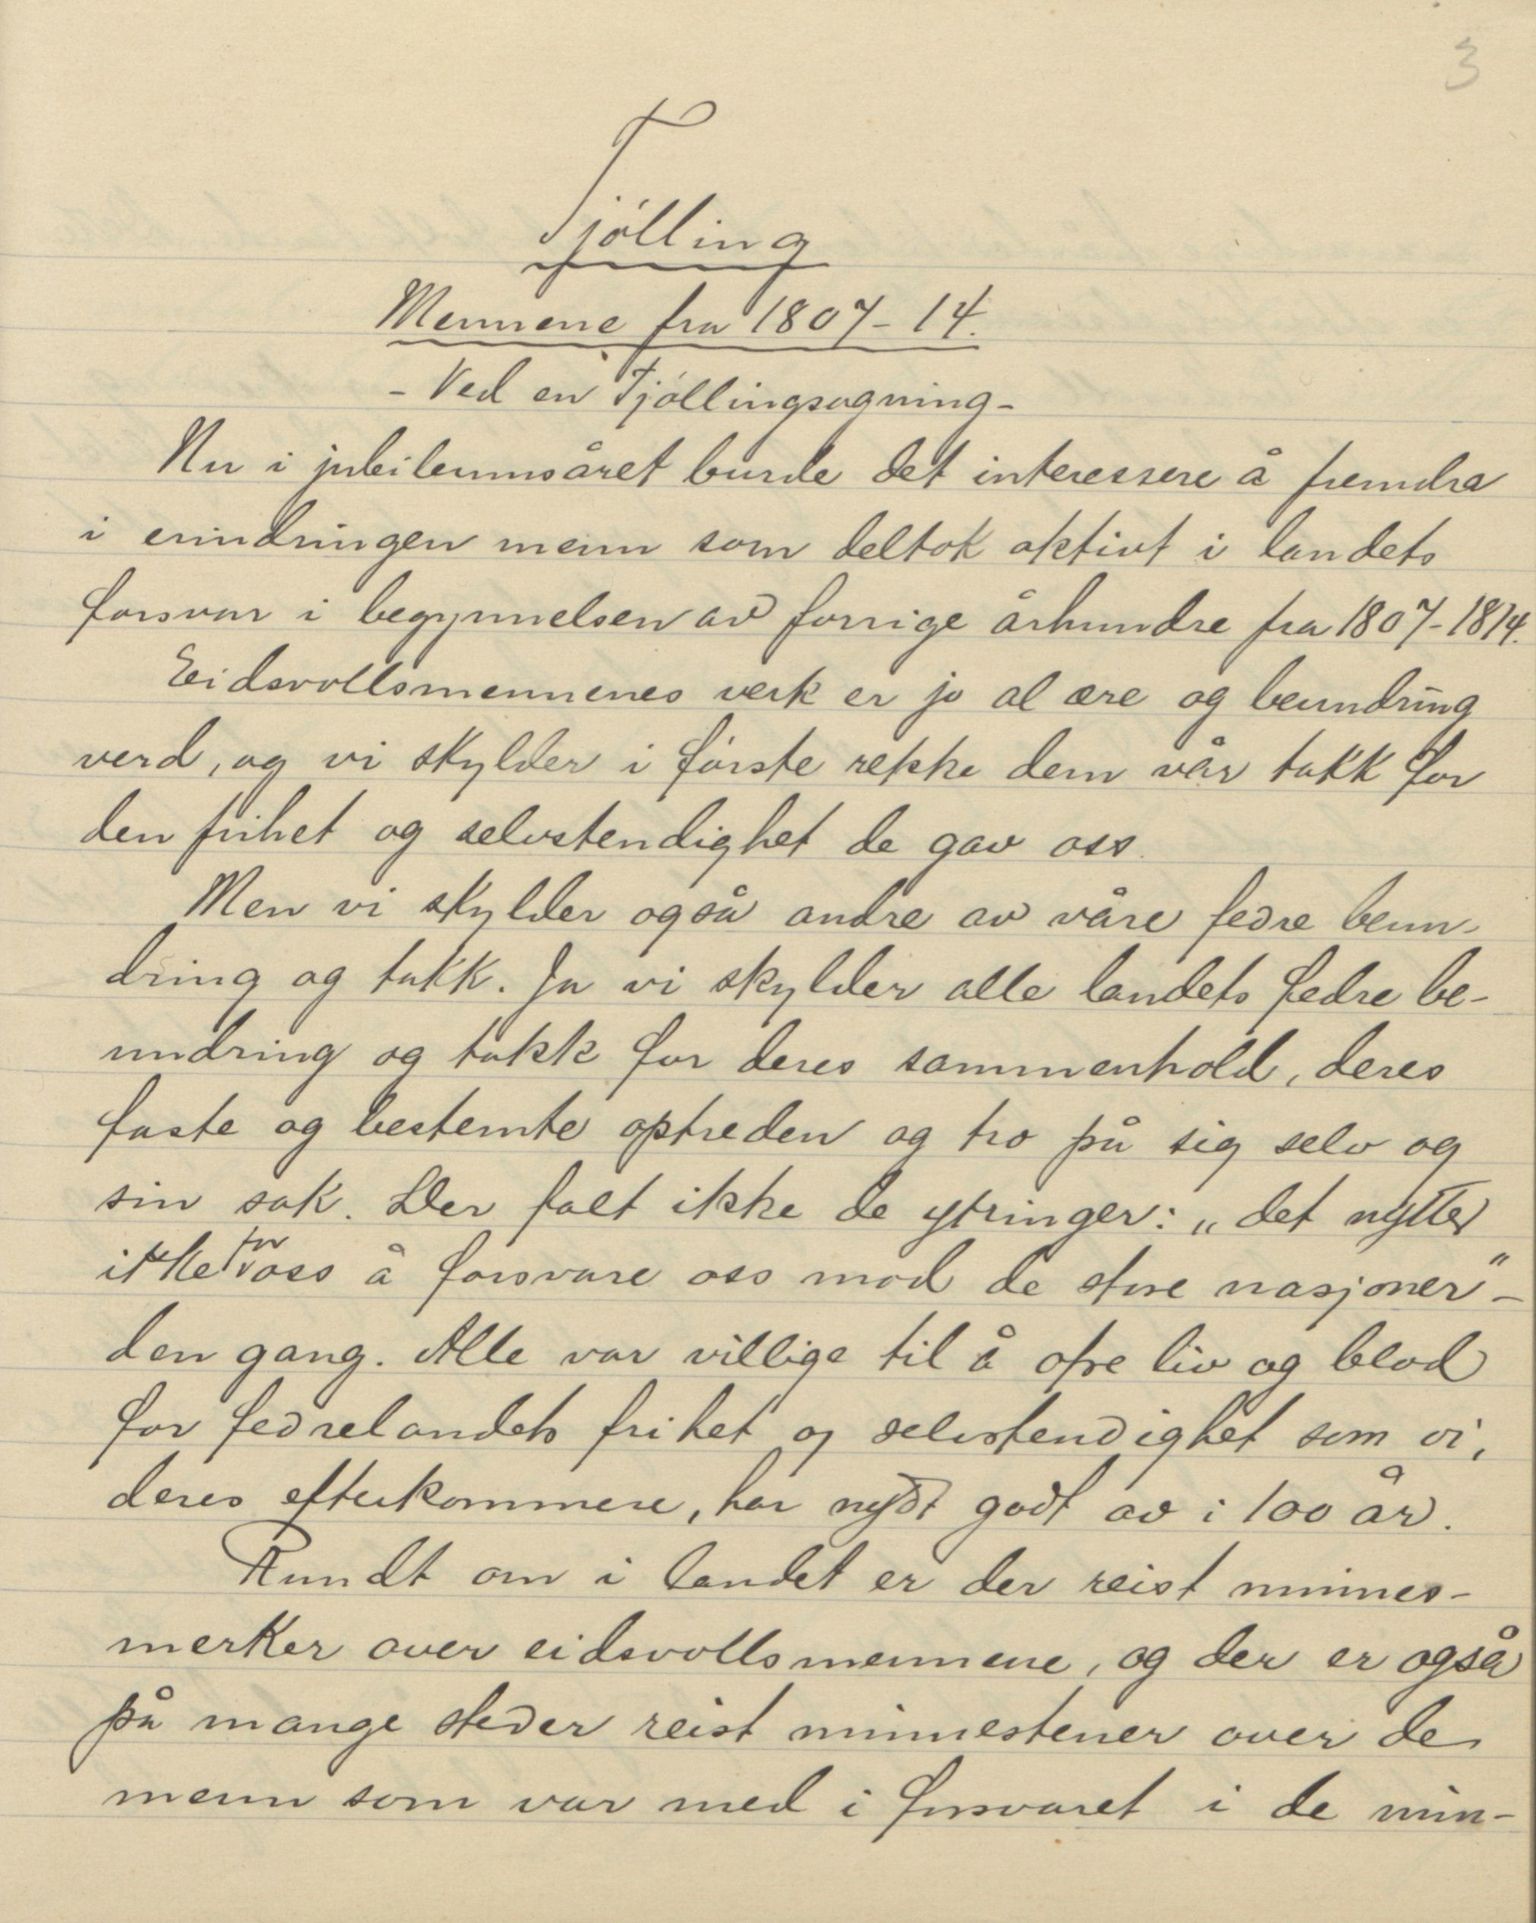 3
Tjølling
Mennene fra 1807-14.
- Ved en Tjøllingsogning -
Nu i jubileumsåret burde det interessere å fremdra
i erindringen menn som deltok aktivt i landets
forsvar i begynnelsen av forrige århundre fra 1807-1814.
Eidsvollsmennenes verk er jo al ære og beundring
verd, og vi skylder i første rekke dem vår takk for
den frihet og selvstendighet de gav oss.
Men vi skylder også andre av våre fedre beun-
dring og takk. Ja vi skylder alle landets fedre be-
undring og takk for deres sammenhold, deres
faste og bestemte optreden og tro på sig selv og
sin sak. Der falt ikke de ytringer: „det nytter
ikke for oss å forsvare oss mod de store nasjoner" -
den gang. Alle var villige til å ofre liv og blod
for fedrelandets frihet og selvstendighet som vi,
deres efterkommere, har nydt godt av i 100 år.
Rundt om i landet er der reist minnes-
merker over eidsvollsmennene, og der er også
på mange steder reist minnestener over de
menn som var med i forsvaret i de min-